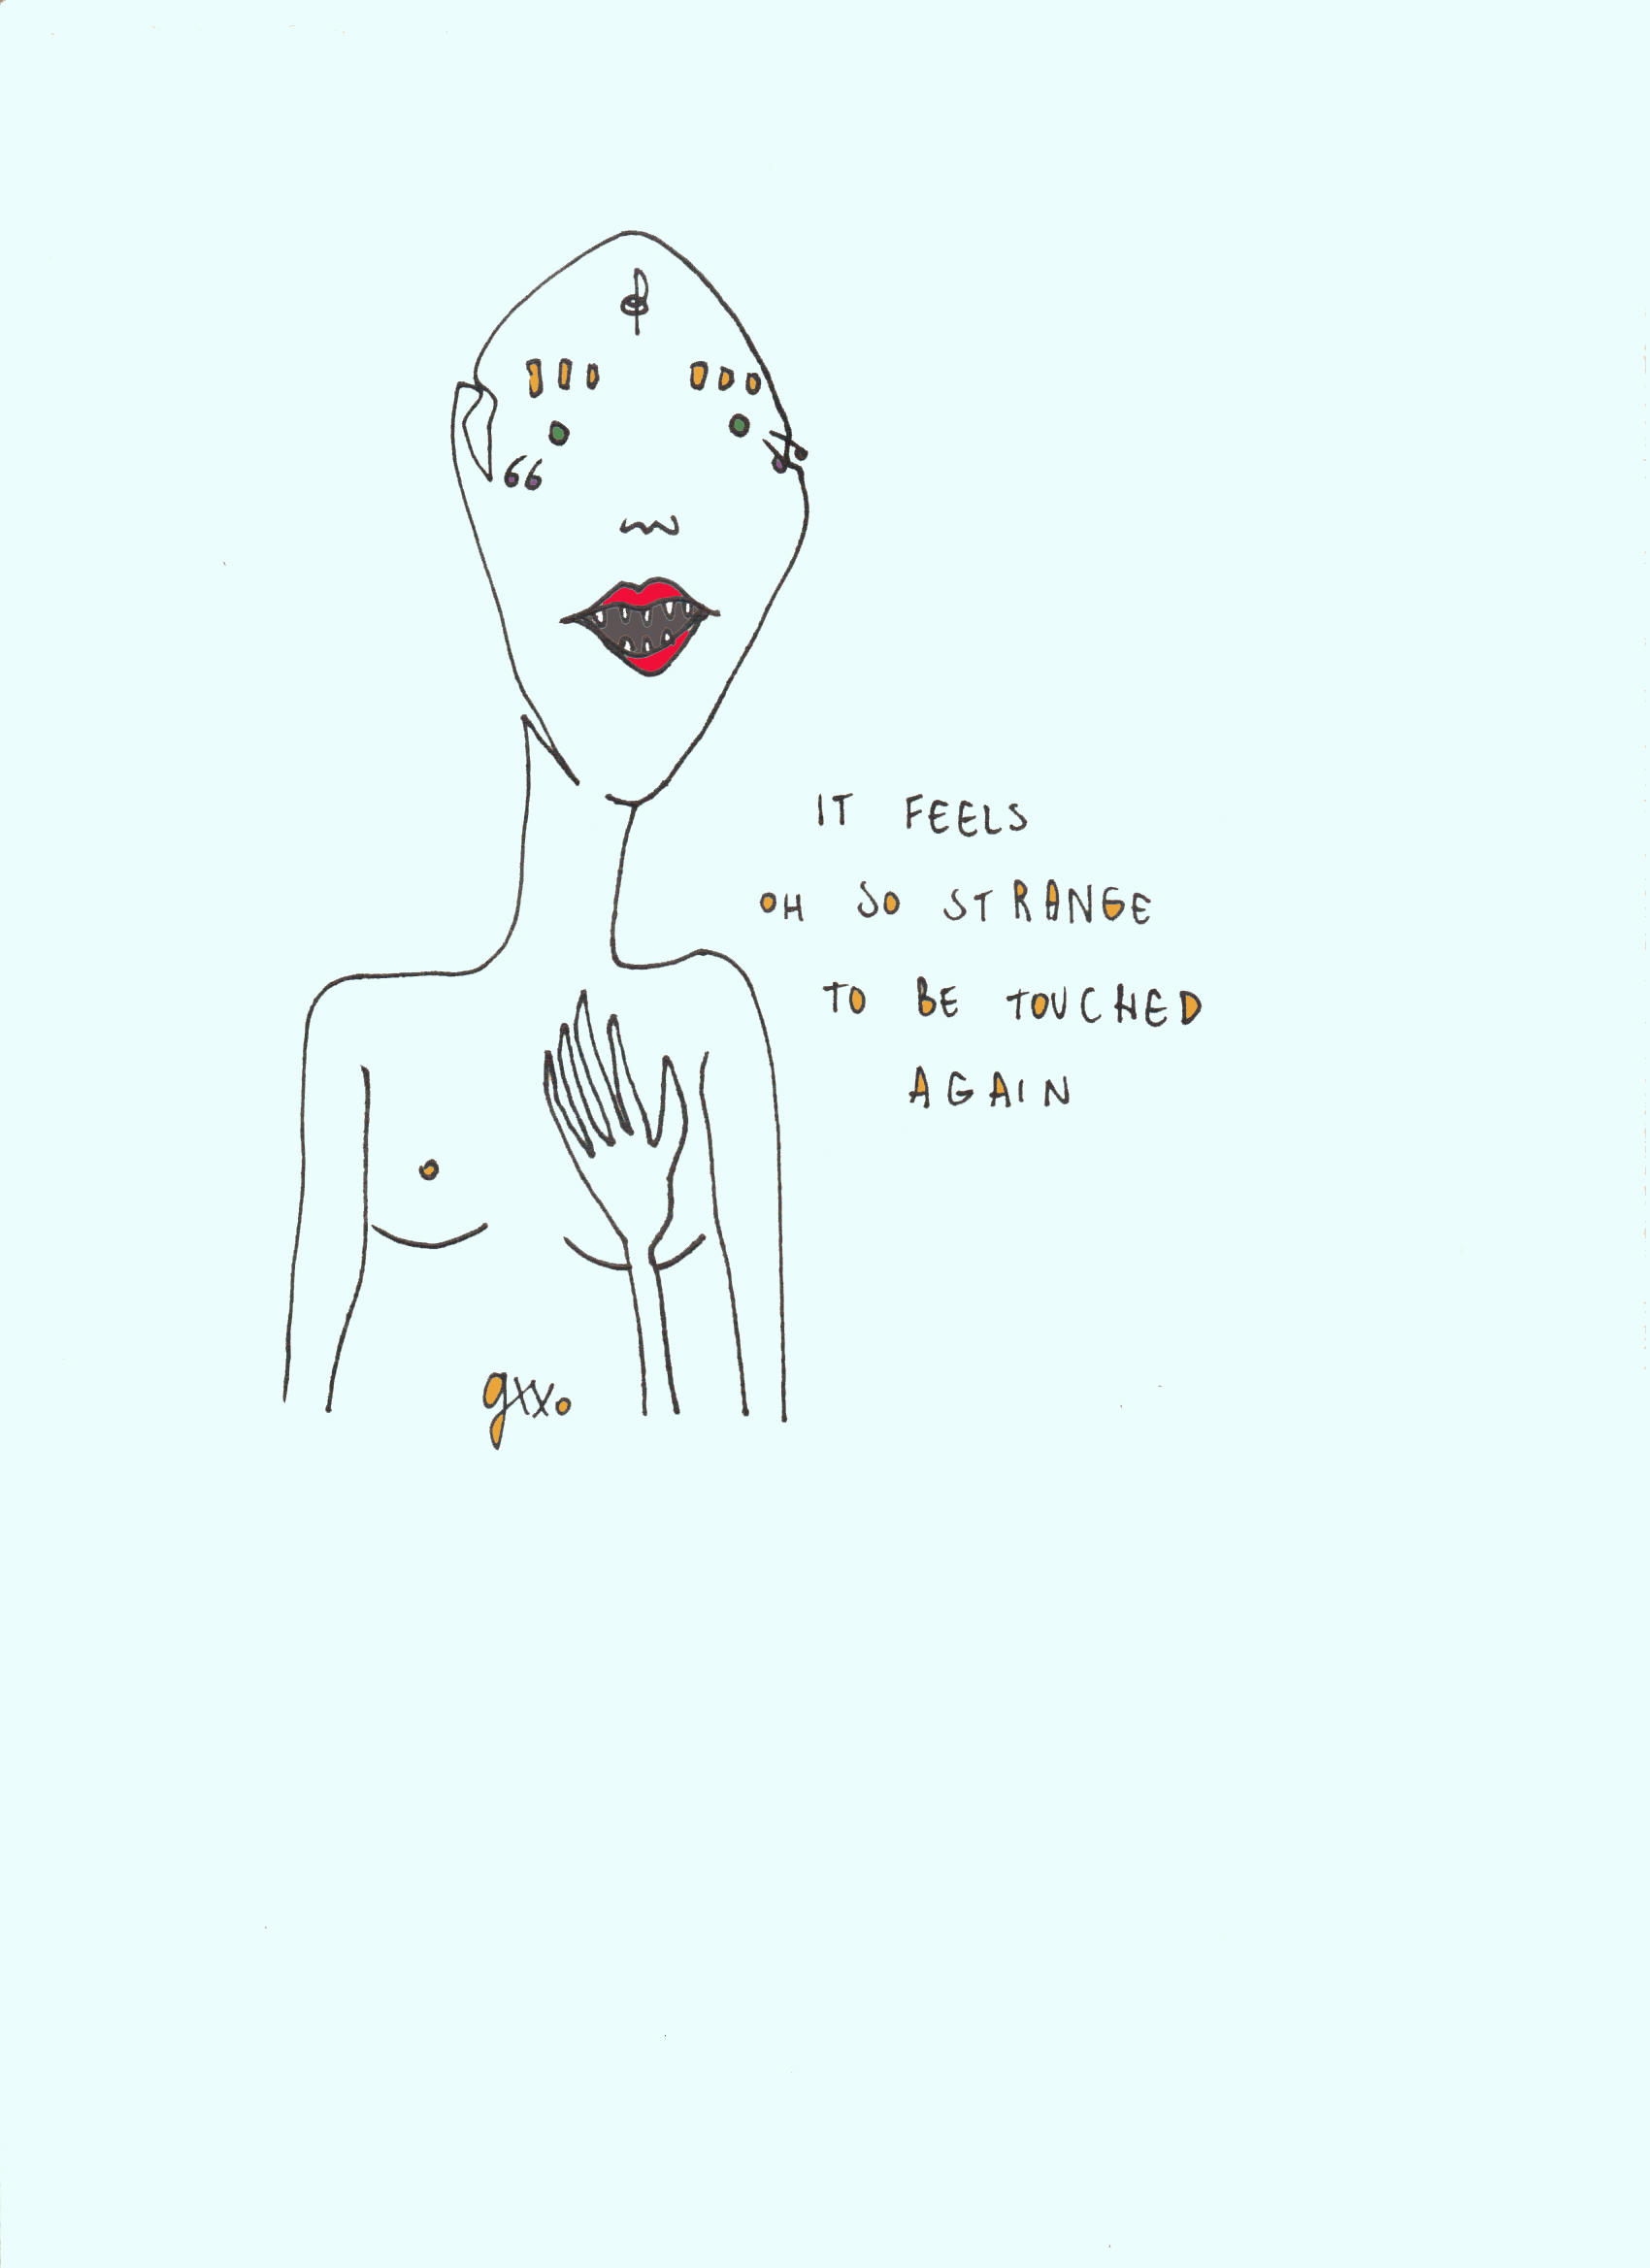 IT FEELS
OH SO STRANGE
TO BE TOUCHED
AGAIN
gxxo